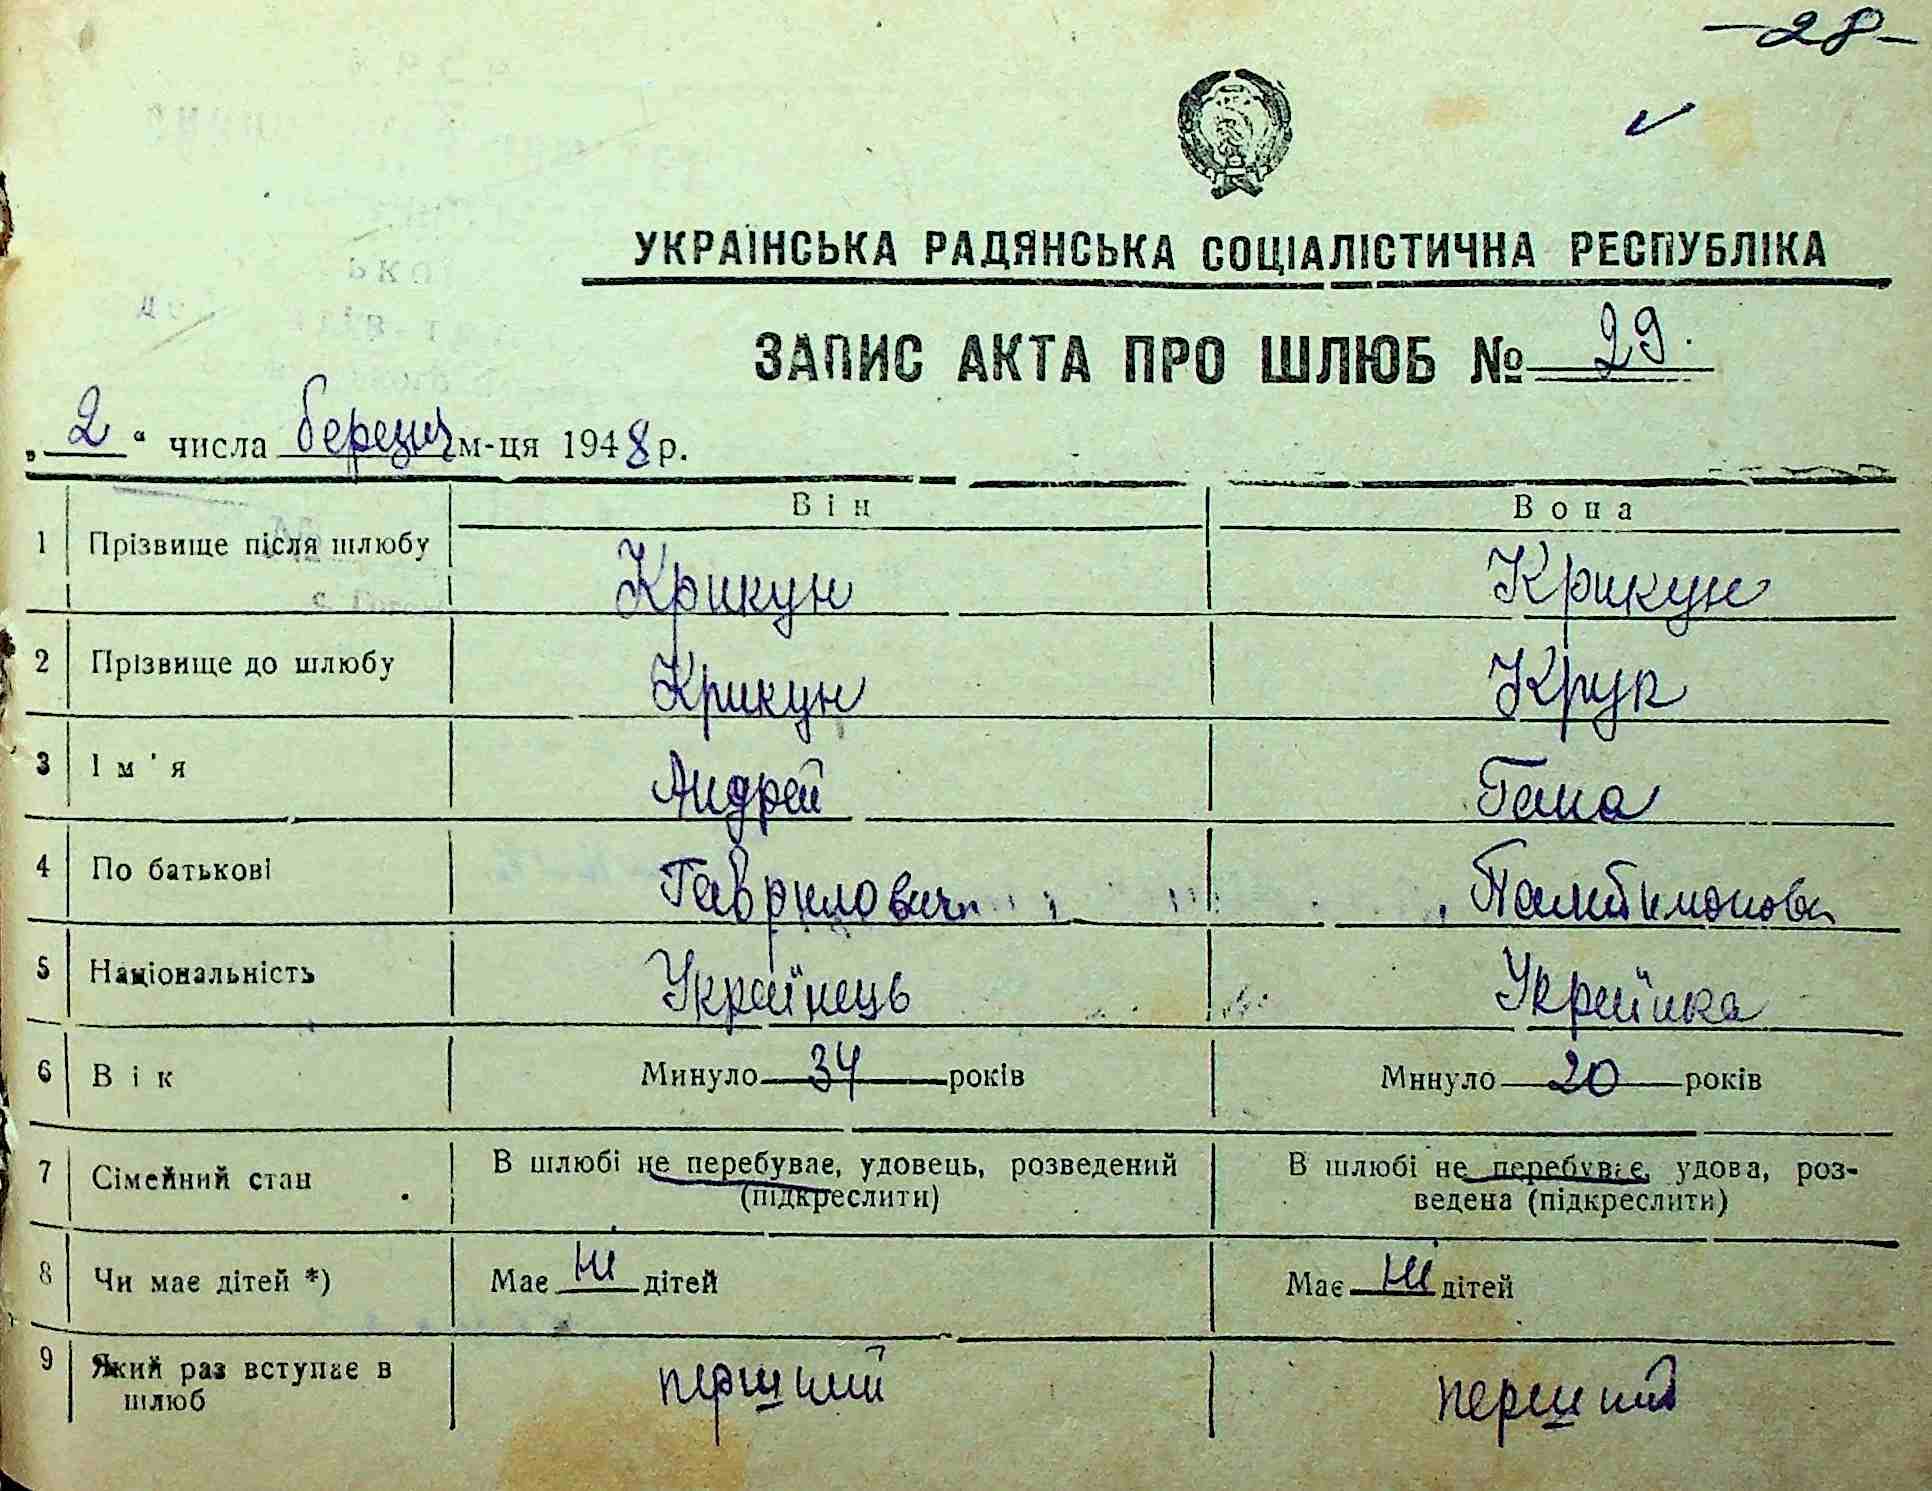 -28-
УКРАЇНСЬКА РАДЯНСЬКА СОЦІАЛІСТИЧНА РЕСПУБЛІКА
ЗАПИС АКТА ПРО ШЛЮБ № 29.
„2“ числа березня м-ця 1948 р.
Він Вона
1 Прізвище після шлюбу Крикун Крикун
2 Прізвище до шлюбу Крикун Крук
3 Ім'я Андрей Гана
4 По батькові Гаврилович
5 Національність Українець Українка
6 Вік Минуло 34 років Минуло 20 років
7 Сімейний стан В шлюбі не перебуває, удовець, розведений В шлюбі не перебуває, удова, роз-
(підкреслити) ведена (підкреслити)
8 Чи має дітей *) Має ні дітей Має ні дітей
9 Який раз вступає в перший перший
шлюб